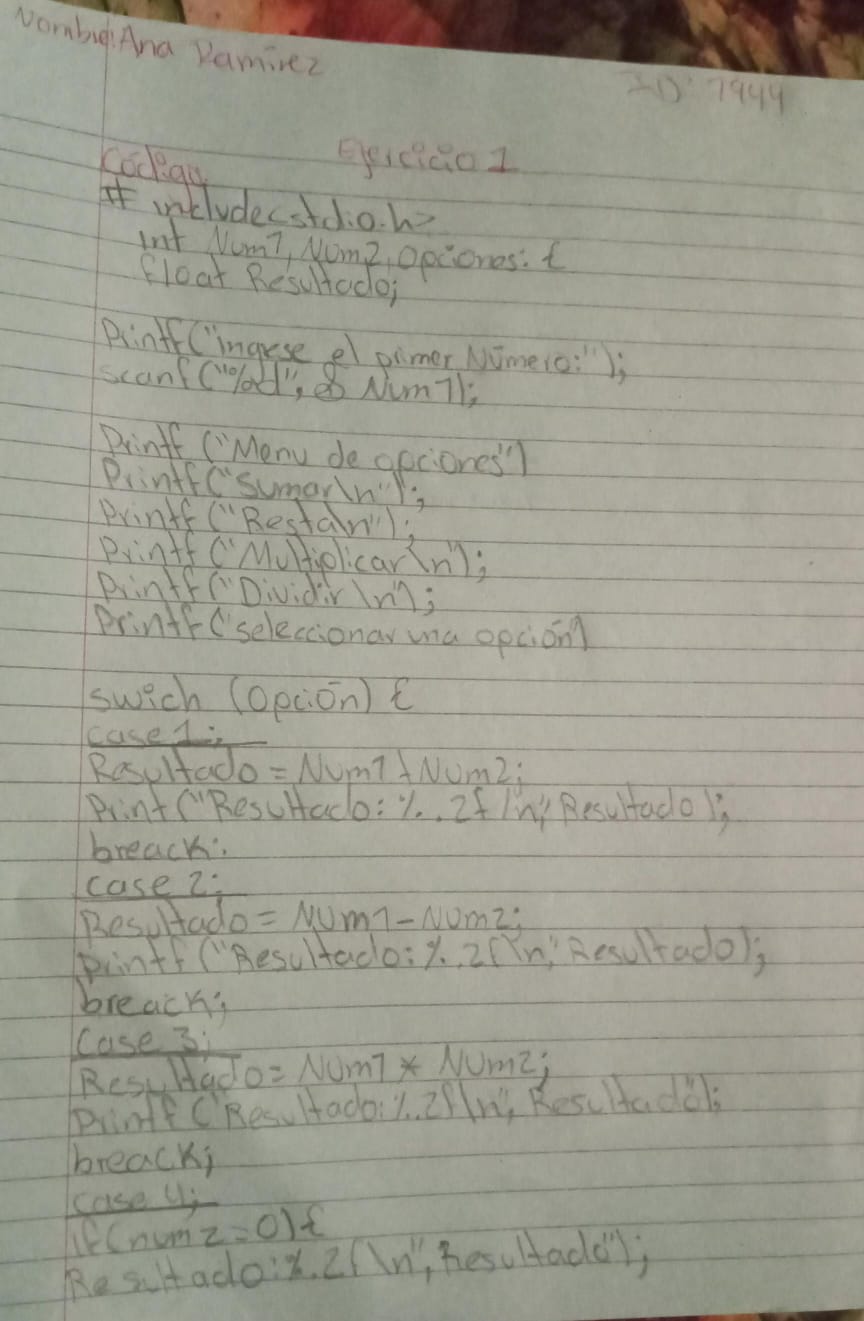 Nombre: Ana Ramírez
ID: 7944
Ejercicio 1
Código
# include<stdio.h>
int Num1, Num2, Opciones: {
float Resultado;
Printf("ingrese el primer Número:");
scanf("%d", & Num1);
Printf ("Menu de opciones")
Printf("Sumar\n");
Printf ("Resta\n");
Printf ("Multiplicar\n");
Printf ("Dividir \n");
Printf ("seleccionar una opción")
swich (Opción) {
case 1:
Resultado = Num1 + Num2;
Print ("Resultado: %..2f /n", Resultado);
breack:.
case 2:
Resultado = Num1 - Num2;
printf ("Resultado: %.2f\n," Resultado);
breack;
case 3;
Resultado = Num1 * Num2;
Printf ("Resultado: %.2f\n", Resultado");
breack;
case 4;
if (num2 = 0) {
Resultado: %.2f\n", Resultado");